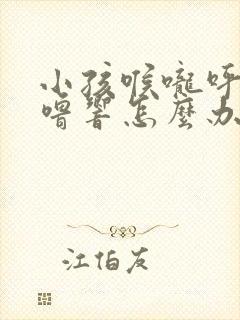 小孩喉嚨呼
嚕響怎麼办
江伯友